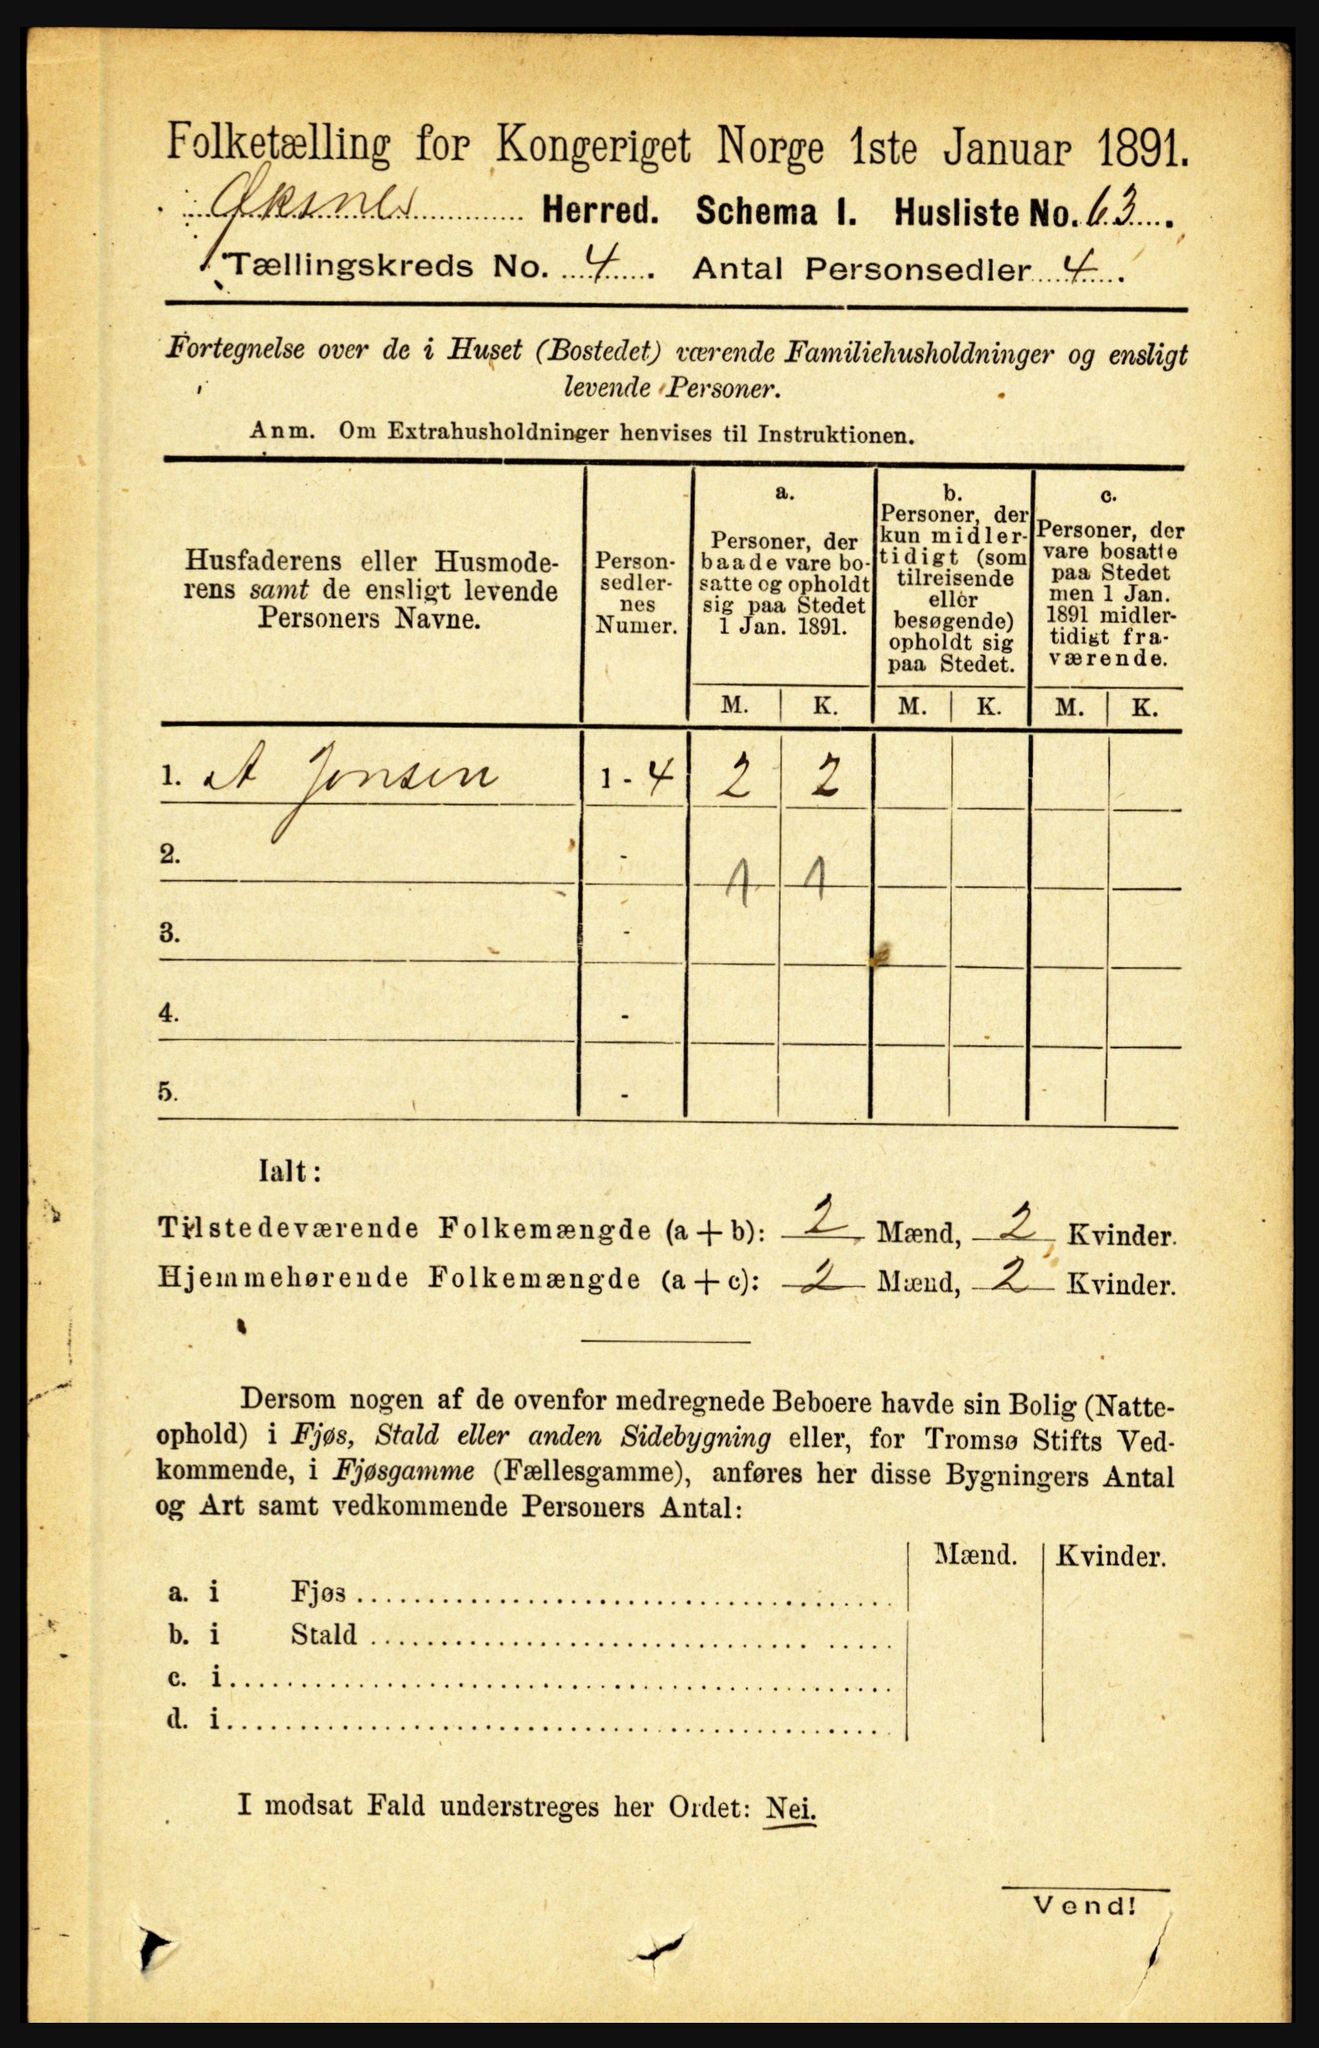 Folketælling for Kongeriget Norge 1ste Januar 1891.
Øksnes Herred. Schema I. Husliste No. 63.
Tællingskreds No. 4. Antal Personsedler 4.
Fortegnelse over de i Huset (Bostedet) værende Familiehusholdninger og ensligt
levende Personer.
Anm. Om Extrahusholdninger henvises til Instruktionen.
Husfaderens eller Husmode-
rens samt de ensligt levende
Personers Navne.
Person-
sedler-
nes
Numer.
a.
Personer, der
baade vare bo-
satte og opholdt
sig paa Stedet
1 Jan. 1891.
b.
Personer, der
kun midler-
tidigt (som
tilreisende
eller
besøgende)
opholdt sig
paa Stedet.
c.
Personer, der
vare bosatte
paa Stedet
men 1 Jan.
1891 midler-
tidigt fra-
værende.
M. K. M. K. M. K.
1. A Jensen 1 - 4 2 2
2. -
1 1
3. -
4. -
5. -
Ialt:
Tilstedeværende Folkemængde (a + b): 2 Mænd, 2 Kvinder.
Hjemmehørende Folkemængde (a + c): 2 Mænd, 2 Kvinder.
Dersom nogen af de ovenfor medregnede Beboere havde sin Bolig (Natte-
ophold) i Fjøs, Stald eller anden Sidebygning eller, for Tromsø Stifts Ved-
kommende, i Fjøsgamme (Fællesgamme), anføres her disse Bygningers Antal
og Art samt vedkommende Personers Antal:
Mænd. Kvinder.
a. i Fjøs
b. i Stald
c. i
d. i
I modsat Fald understreges her Ordet: Nei.
Vend!